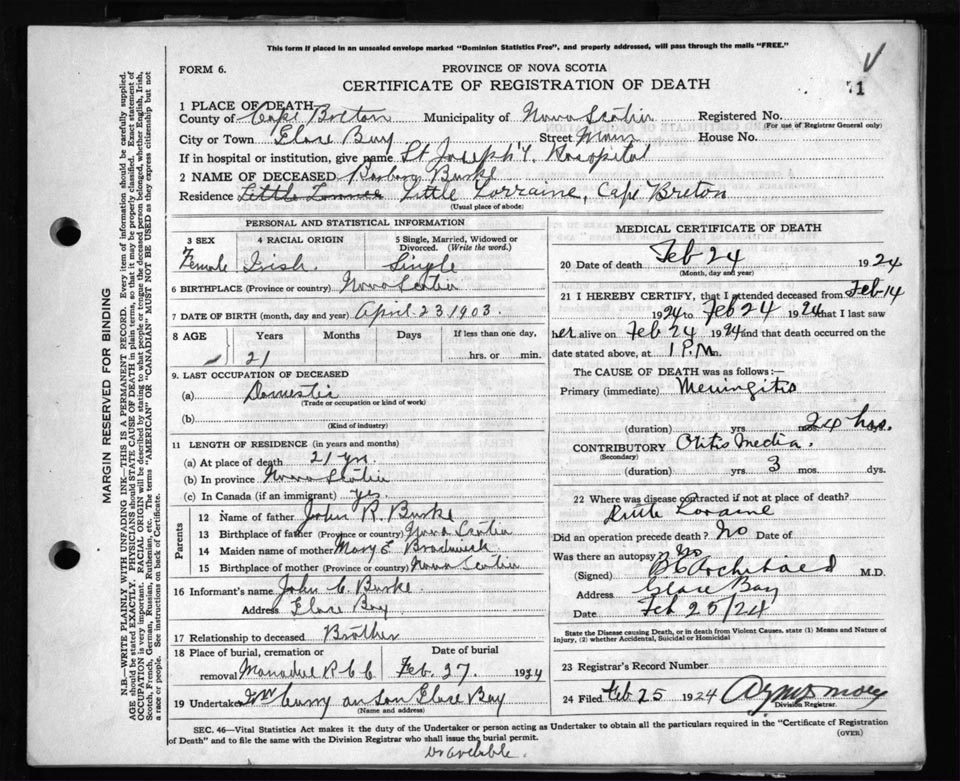 This form if placed in an unsealed envelope marked "Dominion Statistics Free", and properly addressed, will pass through the mails "FREE."
FORM 6.
PROVINCE OF NOVA SCOTIA
CERTIFICATE OF REGISTRATION OF DEATH
1
1 PLACE OF DEATH
County of Cape Breton Municipality of Nova Scotia Registered No.
(For use of Registrar General only)
City or Town Glace Bay Street Main House No.
If in hospital or institution, give name St Joseph's Hospital
2 NAME OF DECEASED Barbary Burke
Residence Little Lorraine, Cape Breton
(Usual place of abode)
PERSONAL AND STATISTICAL INFORMATION
3 SEX 4 RACIAL ORIGIN 5 Single, Married, Widowed or Divorced. (Write the word.)
Female Irish. Single
6 BIRTHPLACE (Province or country) Nova Scotia
7 DATE OF BIRTH (month, day and year) April 23 1903.
8 AGE Years Months Days If less than one day,
21 hrs. or min.
9. LAST OCCUPATION OF DECEASED
(a) Domestic
(Trade or occupation or kind of work)
(b)
(Kind of industry)
11 LENGTH OF RESIDENCE (in years and months)
(a) At place of death 21 yrs.
(b) In province Nova Scotia
(c) In Canada (if an immigrant) yes
Parents
12 Name of father John R. Burke
13 Birthplace of father (Province or country) Nova Scotia
14 Maiden name of mother Mary E
15 Birthplace of mother (Province or country) Nova Scotia
16 Informant's name John C. Burke
Address Glace Bay
17 Relationship to deceased Brother
18 Place of burial, cremation or removal Date of burial
R C C Feb. 27 1924
19 Undertaker Curry an Son Glace Bay
(Name and address)
MEDICAL CERTIFICATE OF DEATH
20 Date of death Feb 24 1924
(Month, day and year)
21 I HEREBY CERTIFY, that I attended deceased from Feb 14
1924 to Feb 24 1924 that I last saw
her alive on Feb 24 1924 and that death occurred on
date stated above, at 1 P.M.
The CAUSE OF DEATH was as follows:—
Primary (immediate) Meningitis
(duration) yrs mos 24 hrs. dys.
CONTRIBUTORY Otitis Media.
(Secondary)
(duration) yrs 3 mos. dys.
22 Where was disease contracted if not at place of death?
Little Loraine
Did an operation precede death? No Date of
Was there an autopsy? No
(Signed) Archibald M.D.
Address Glace Bay
Date Feb 25/24
State the Disease causing Death, or in death from Violent Causes, state (1) Means and Nature of Injury, (2) whether Accidental, Suicidal or Homicidal
23 Registrar's Record Number
24 Filed Feb 25 1924
Division Registrar.
SEC. 46—Vital Statistics Act makes it the duty of the Undertaker or person acting as Undertaker to obtain all the particulars required in the "Certificate of Registration
of Death" and to file the same with the Division Registrar who shall issue the burial permit.
(OVER)
MARGIN RESERVED FOR BINDING
N.B.—WRITE PLAINLY WITH UNFADING INK—THIS IS A PERMANENT RECORD. Every item of information should be carefully supplied.
AGE should be stated EXACTLY. PHYSICIANS should STATE CAUSE OF DEATH in plain terms, so that it may be properly classified. Exact statement of
OCCUPATION is very important. RACIAL ORIGIN will be described by stating to what people or tongue the deceased person belonged, whether English, Irish,
Scotch, French, German, Russian, Ruthenian, etc. The terms "AMERICAN" OR "CANADIAN" MUST NOT BE USED as they express citizenship but not
a race or people. See instructions on back of Certificate.